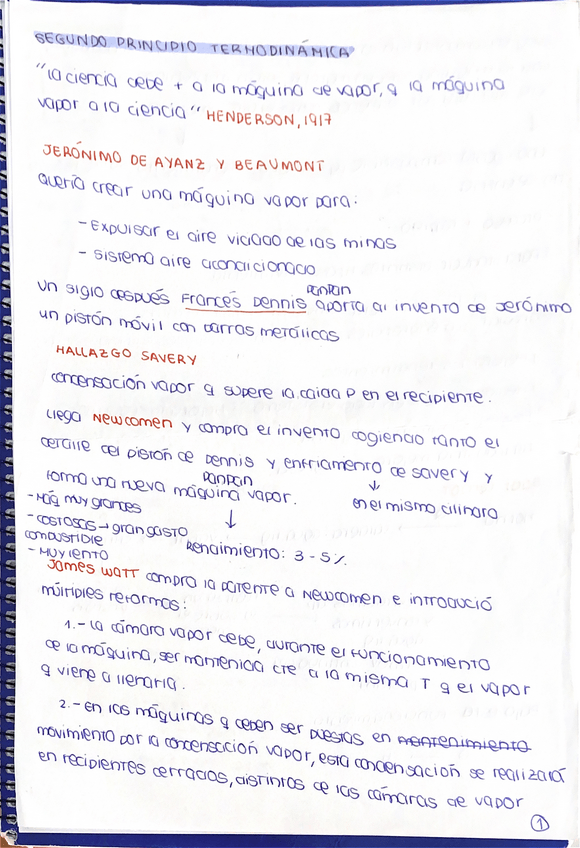 SEGUNDO PRINCIPIO TERMODINÁMICA
"la ciencia debe + a la máquina de vapor, q la máquina
vapor a la ciencia" HENDERSON, 1917
JERÓNIMO DE AYANZ Y BEAUMONT
quería crear una máquina vapor para:
- Expulsar el aire viciado de las minas
- Sistema aire acondicionado
Un siglo después Francés Dennis panpan aporta al invento de Jerónimo
un pistón móvil con barras metálicas
HALLAZGO SAVERY
condensación vapor q supere la caída P en el recipiente.
Llega Newcomen y compra el invento cogiendo tanto el
detalle del pistón de Dennis panpan y enfriamiento de Savery y
forma una nueva máquina vapor. ↓ en el mismo, cilindro
- Máq muy grandes ↓
- costosas → gran gasto
combustible Rendimiento: 3-5%
- Muy lento
James Watt compra la patente a Newcomen e introdució
múltiples reformas:
1.- La cámara vapor debe, durante el funcionamiento
de la máquina, ser mantenida cte a la misma T q el vapor
q viene a llenarla.
2.- en las máquinas q deben ser puestas en mantenimiento
movimiento por la condensación vapor, esta condensación se realizará
en recipientes cerrados, distintos de las cámaras de vapor
1